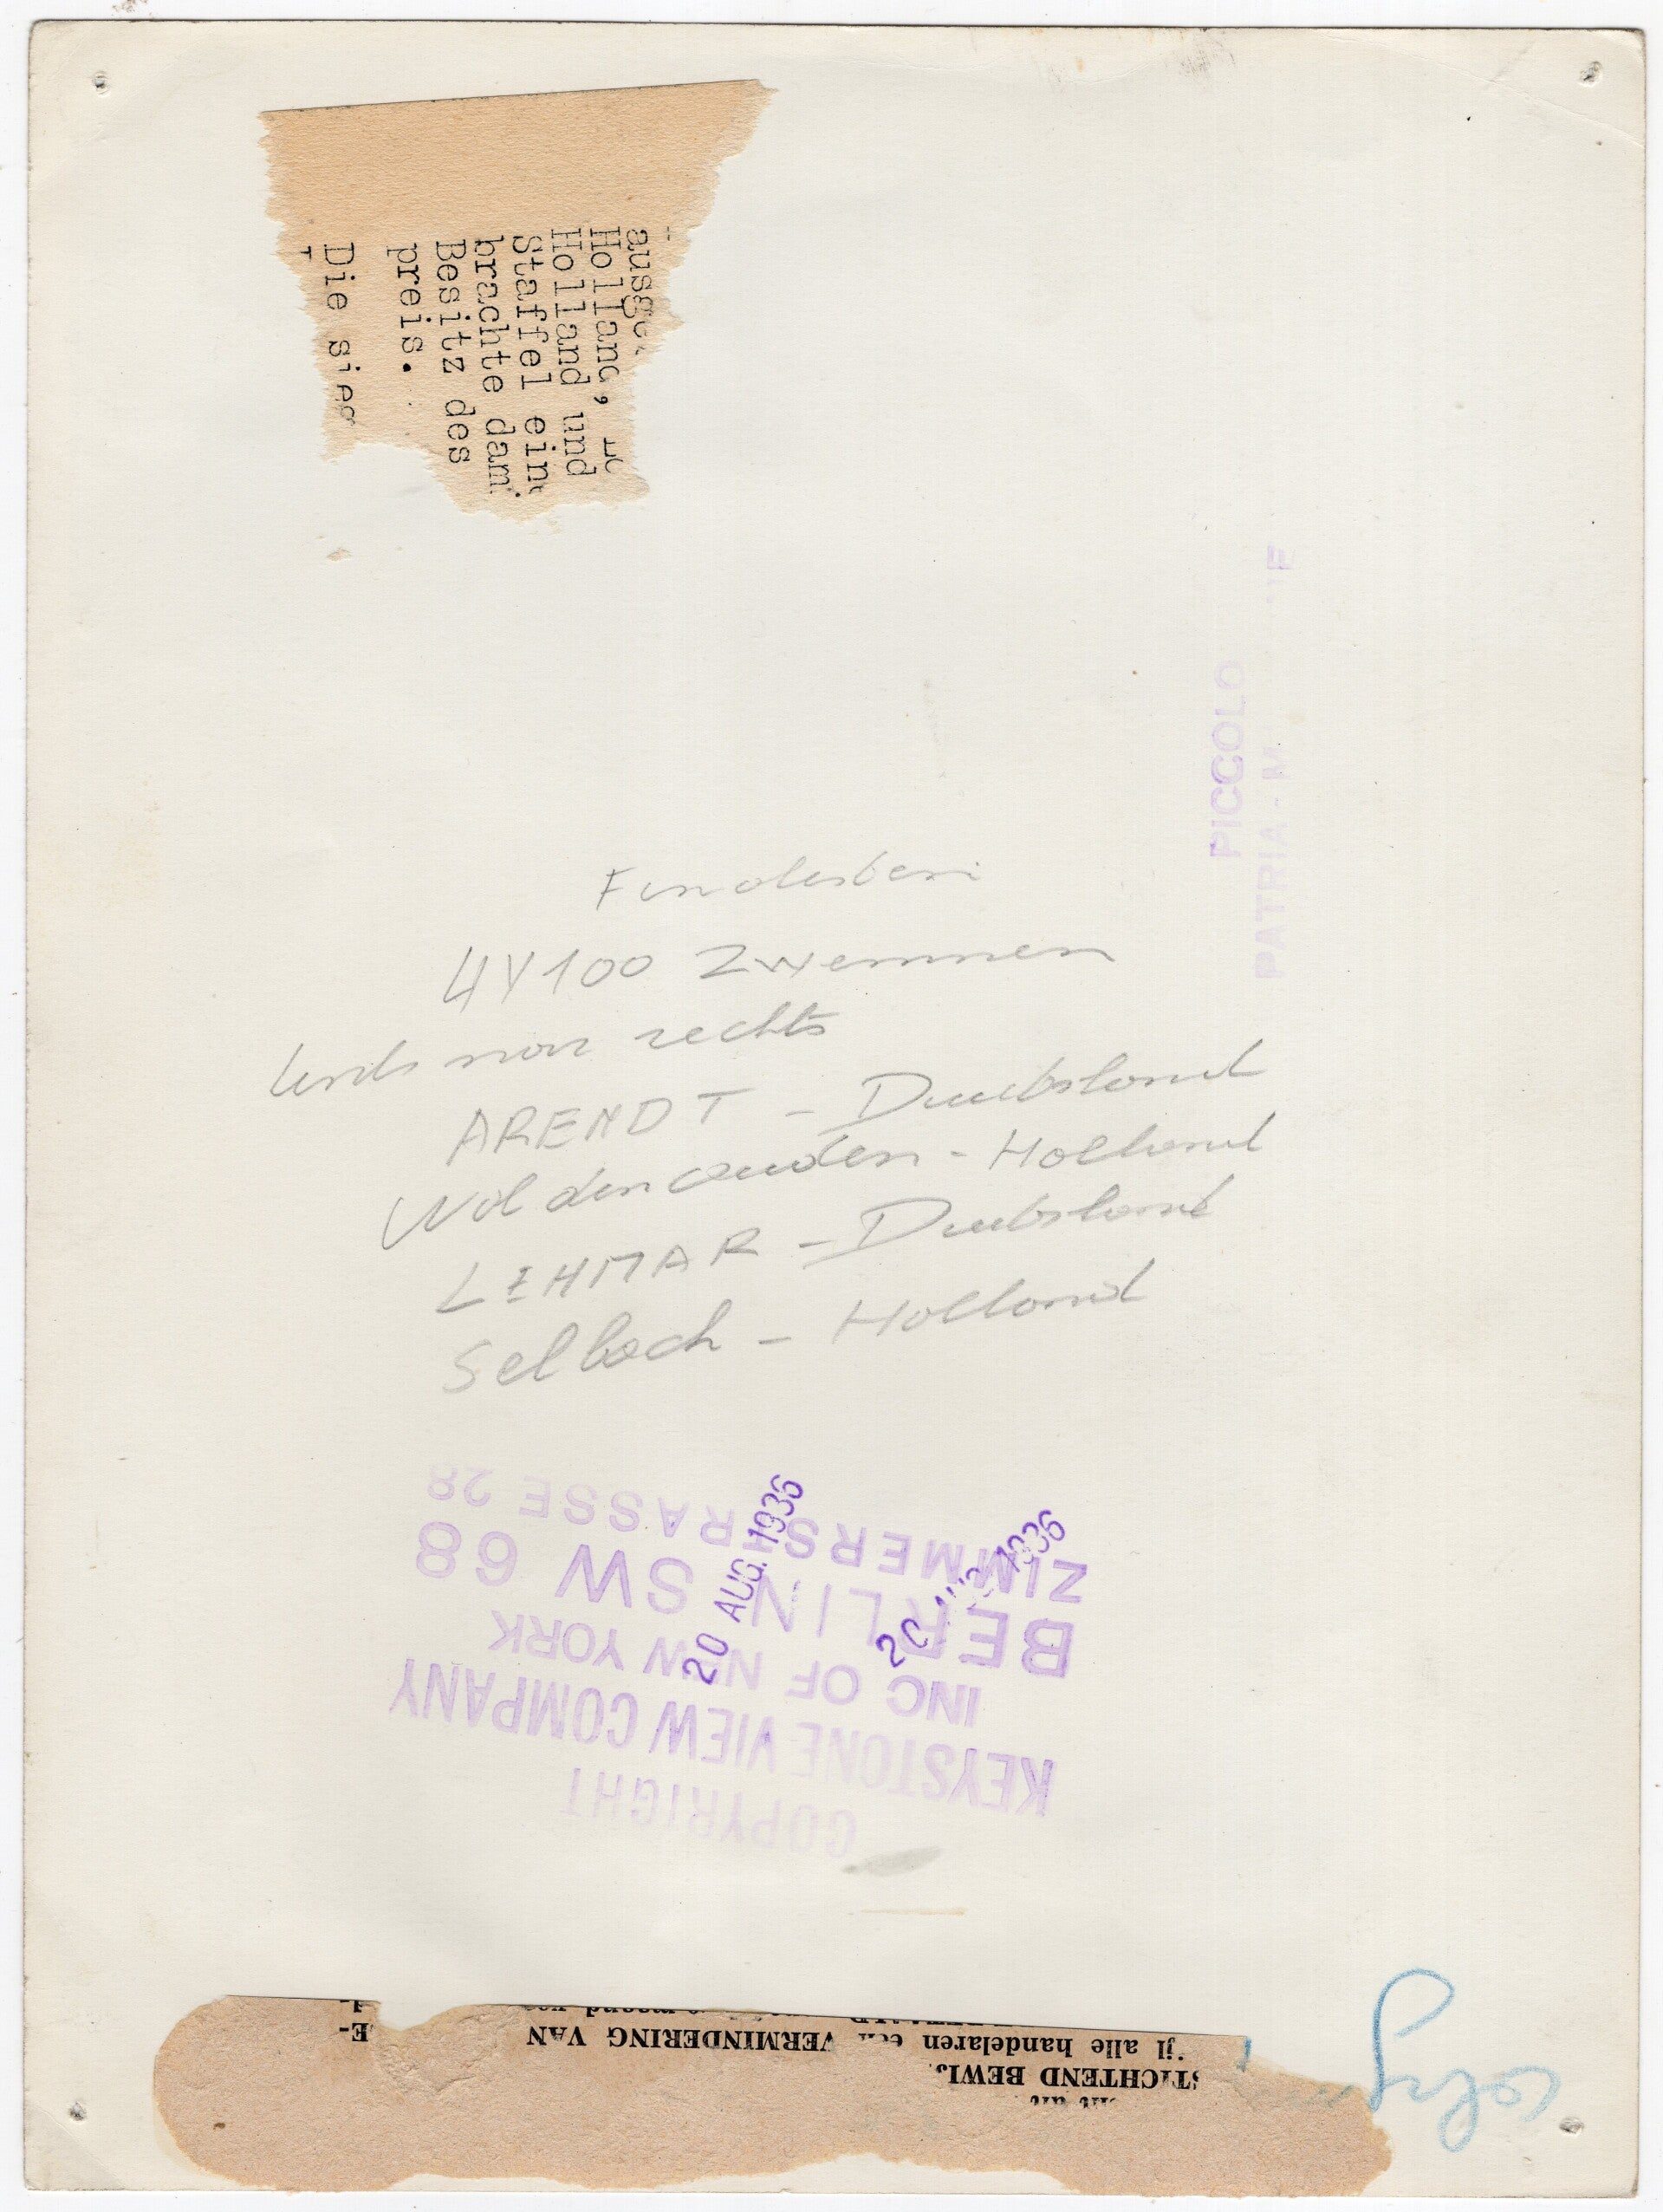 Hollan
Holland und
Staffel ein
brachte dam
Besitz des
preis.
Die sie
PICCOLO
PATRIA-M
4X100 Zwemmen
rechts
ARENDT - Duitsland
Wil den Ouden - Holland
LEHMAR - Duitsland
Selbach - Holland
COPYRIGHT
KEYSTONE VIEW COMPANY
INC OF NEW YORK
BERLIN SW 68
ZIMMERSTRASSE 28
20 AUG. 1936
20 AUG 1936
STICHTEND BEWIJ
alle handelaren een VERMINDERING VAN
maand